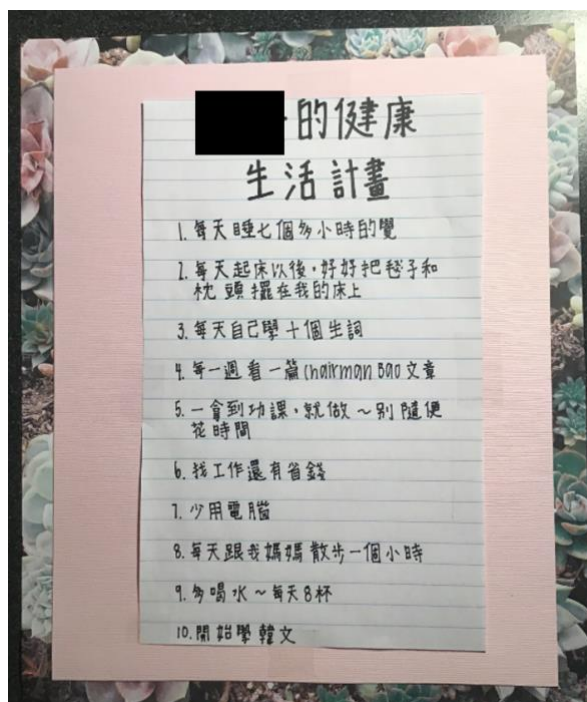 的健康
生活計畫
1. 每天睡七個多小時的覺
2. 每天起床以後，好好把毯子和
枕頭擺在我的床上
3. 每天自己學十個生詞
4. 每一週看一篇Chairman Bao文章
5. 一拿到功課，就做～別隨便
花時間
6. 找工作還有省錢
7. 少用電腦
8. 每天跟我媽媽散步一個小時
9. 多喝水～每天8杯
10. 開始學韓文